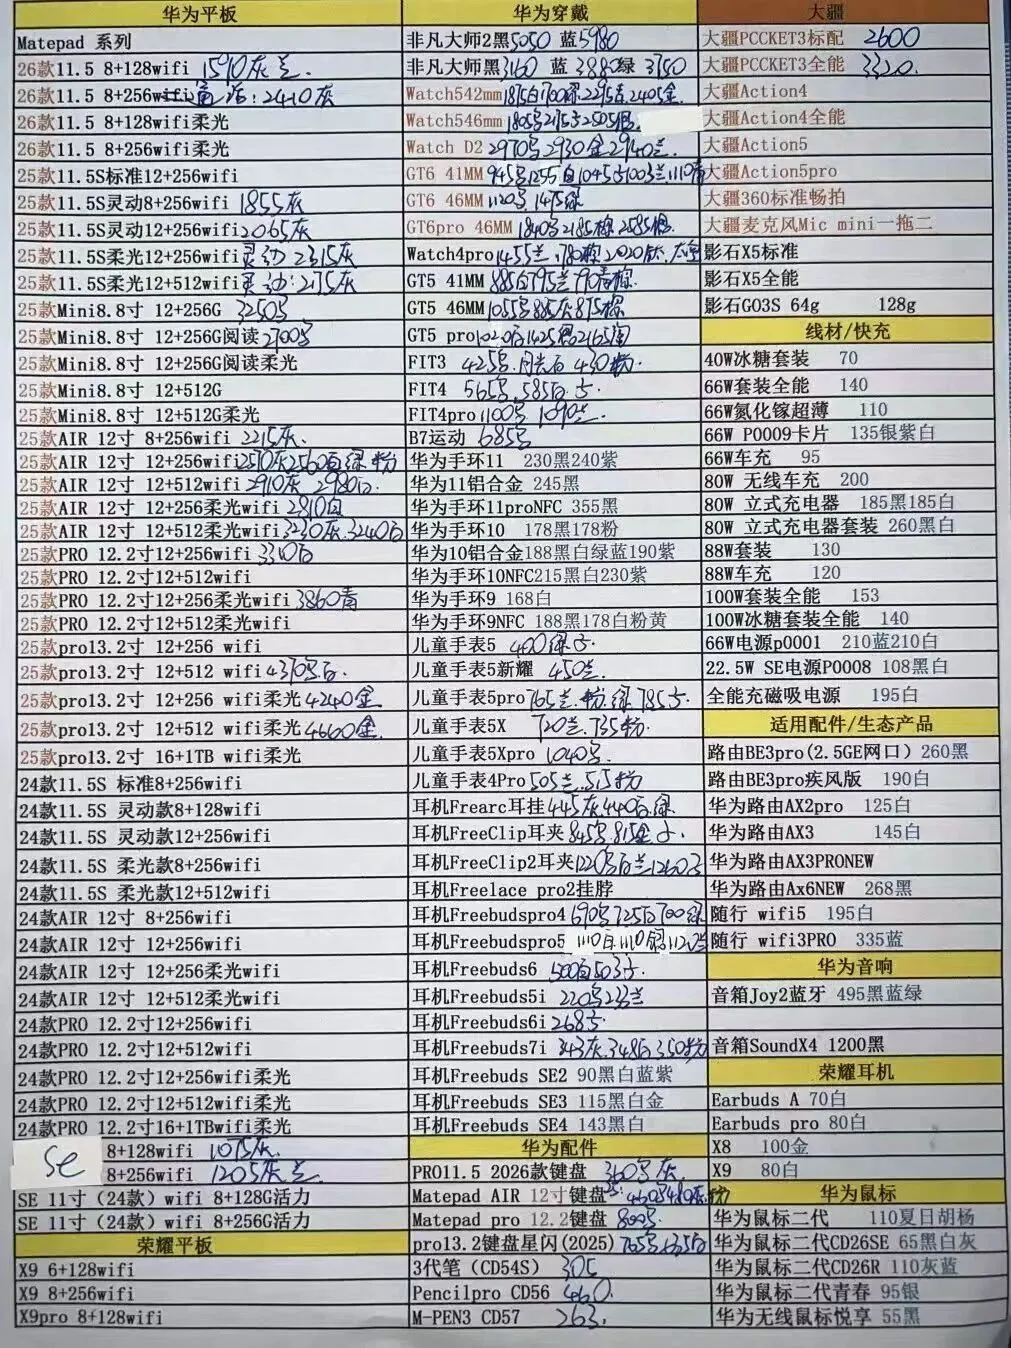 华为平板
Matepad 系列
26款11.5 8+128wifi 1510灰兰.
26款11.5 8+256wifi 2410灰
26款11.5 8+128wifi柔光
26款11.5 8+256wifi柔光
25款11.5S标准12+256wifi
25款11.5S灵动8+256wifi 1855灰
25款11.5S灵动12+256wifi2065灰
25款11.5S柔光12+256wifi灵动 2315灰
25款11.5S柔光12+512wifi灵动:2175灰
25款Mini8.8寸 12+256G 3250
25款Mini8.8寸 12+256G阅读2700
25款Mini8.8寸 12+256G阅读柔光
25款Mini8.8寸 12+512G
25款Mini8.8寸 12+512G柔光
25款AIR 12寸 8+256wifi 2215灰.
25款AIR 12寸 12+256wifi2570灰2560白绿粉
25款AIR 12寸 12+512wifi2910灰 2980白.
25款AIR 12寸 12+256柔光wifi2810白
25款AIR 12寸 12+512柔光wifi3230灰.3240白
25款PRO 12.2寸12+256wifi 3340白
25款PRO 12.2寸12+512wifi
25款PRO 12.2寸12+256柔光wifi3860青
25款PRO 12.2寸12+512柔光wifi
25款pro13.2寸 12+256 wifi
25款pro13.2寸 12+512 wifi4370黑白.
25款pro13.2寸 12+256 wifi柔光4240金
25款pro13.2寸 12+512 wifi柔光4660金.
25款pro13.2寸 16+1TB wifi柔光
24款11.5S 标准8+256wifi
24款11.5S 灵动款8+128wifi
24款11.5S 灵动款12+256wifi
24款11.5S 柔光款8+256wifi
24款11.5S 柔光款12+512wifi
24款AIR 12寸 8+256wifi
24款AIR 12寸 12+256wifi
24款AIR 12寸 12+256柔光wifi
24款AIR 12寸 12+512柔光wifi
24款PRO 12.2寸12+256wifi
24款PRO 12.2寸12+512wifi
24款PRO 12.2寸12+256wifi柔光
24款PRO 12.2寸12+512wifi柔光
24款PRO 12.2寸16+1TBwifi柔光
SE
8+128wifi 1075灰.
8+256wifi 1205灰兰.
SE 11寸（24款）wifi 8+128G活力
SE 11寸（24款）wifi 8+256G活力
荣耀平板
X9 6+128wifi
X9 8+256wifi
X9pro 8+128wifi
华为穿戴
非凡大师2黑5050 蓝5980
非凡大师黑3160 蓝3880绿 3750
Watch542mm
Watch546mm
Watch D2 2970黑2930金2940兰.
GT6 41MM
GT6 46MM 1120黑 1475绿
GT6pro 46MM 1840黑2185棕 2585银.
Watch4pro1455兰.1780棕.2020钛.
GT5 41MM 885白795兰790
GT5 46MM 1055黑885灰875棕
GT5 pro
FIT3 425黑.月光白 430粉.
FIT4 565黑.585白.
FIT4pro1100黑 1090兰.
B7运动 685黑
华为手环11 230黑240紫
华为11铝合金 245黑
华为手环11proNFC 355黑
华为手环10 178黑178粉
华为10铝合金188黑白绿蓝190紫
华为手环10NFC215黑白230紫
华为手环9 168白
华为手环9NFC 188黑178白粉黄
儿童手表5 400绿
儿童手表5新耀 450兰.
儿童手表5pro765兰.粉.绿 785
儿童手表5X 720兰.735粉.
儿童手表5Xpro 1040黑.
儿童手表4Pro505兰.515粉
耳机Frearc耳挂445灰.440白.绿
耳机FreeClip耳夹845黑815金
耳机FreeClip2耳夹1220黑白兰1240
耳机Freelace pro2挂脖
耳机Freebudspro4690黑725白700绿
耳机Freebudspro5 1110白1110
耳机Freebuds6 500白503
耳机Freebuds5i 220黑233兰
耳机Freebuds6i 268
耳机Freebuds7i 343灰.348白.350粉
耳机Freebuds SE2 90黑白蓝紫
耳机Freebuds SE3 115黑白金
耳机Freebuds SE4 143黑白
华为配件
PRO11.5 2026款键盘 360黑灰.
Matepad AIR 12寸键盘 460黑480灰粉
Matepad pro 12.2键盘 800黑.
pro13.2键盘星闪(2025)765黑
3代笔（CD54S） 305
Pencilpro CD56 460.
M-PEN3 CD57 263.
大疆
大疆PCCKET3标配 2600
大疆PCCKET3全能 3320.
大疆Action4
大疆Action4全能
大疆Action5
大疆Action5pro
大疆360标准畅拍
大疆麦克风Mic mini一拖二
影石X5标准
影石X5全能
影石GO3S 64g 128g
线材/快充
40W冰糖套装 70
66W套装全能 140
66W氮化镓超薄 110
66W P0009卡片 135银紫白
66W车充 95
80W 无线车充 200
80W 立式充电器 185黑185白
80W 立式充电器套装 260黑白
88W套装 130
88W车充 120
100W套装全能 153
100W冰糖套装全能 140
66W电源p0001 210蓝210白
22.5W SE电源P0008 108黑白
全能充磁吸电源 195白
适用配件/生态产品
路由BE3pro(2.5GE网口) 260黑
路由BE3pro疾风版 190白
华为路由AX2pro 125白
华为路由AX3 145白
华为路由AX3PRONEW
华为路由Ax6NEW 268黑
随行 wifi5 195白
随行 wifi3PRO 335蓝
华为音响
音箱Joy2蓝牙 495黑蓝绿
音箱SoundX4 1200黑
荣耀耳机
Earbuds A 70白
Earbuds pro 80白
X8 100金
X9 80白
华为鼠标
华为鼠标二代 110夏日胡杨
华为鼠标二代CD26SE 65黑白灰
华为鼠标二代CD26R 110灰蓝
华为鼠标二代青春 95银
华为无线鼠标悦享 55黑